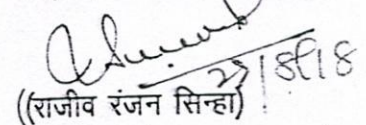 27/8/18
((राजीव रंजन सिन्हा)